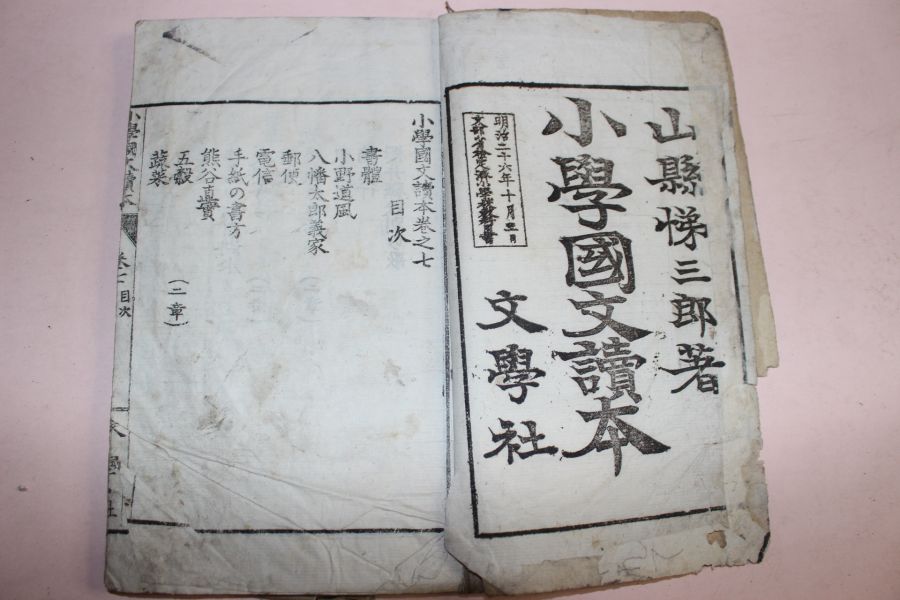 山縣悌三郎著
小學國文讀本
明治二十六年十月三日
文部省檢定濟小學校教科書
文學社
小學國文讀本卷之七
目次
書體
小野道風
八幡太郎義家
郵便
電信
手紙の書方
熊谷直實
五穀 (二章)
蔬菜
小學國文讀本
卷七 目次
文學社